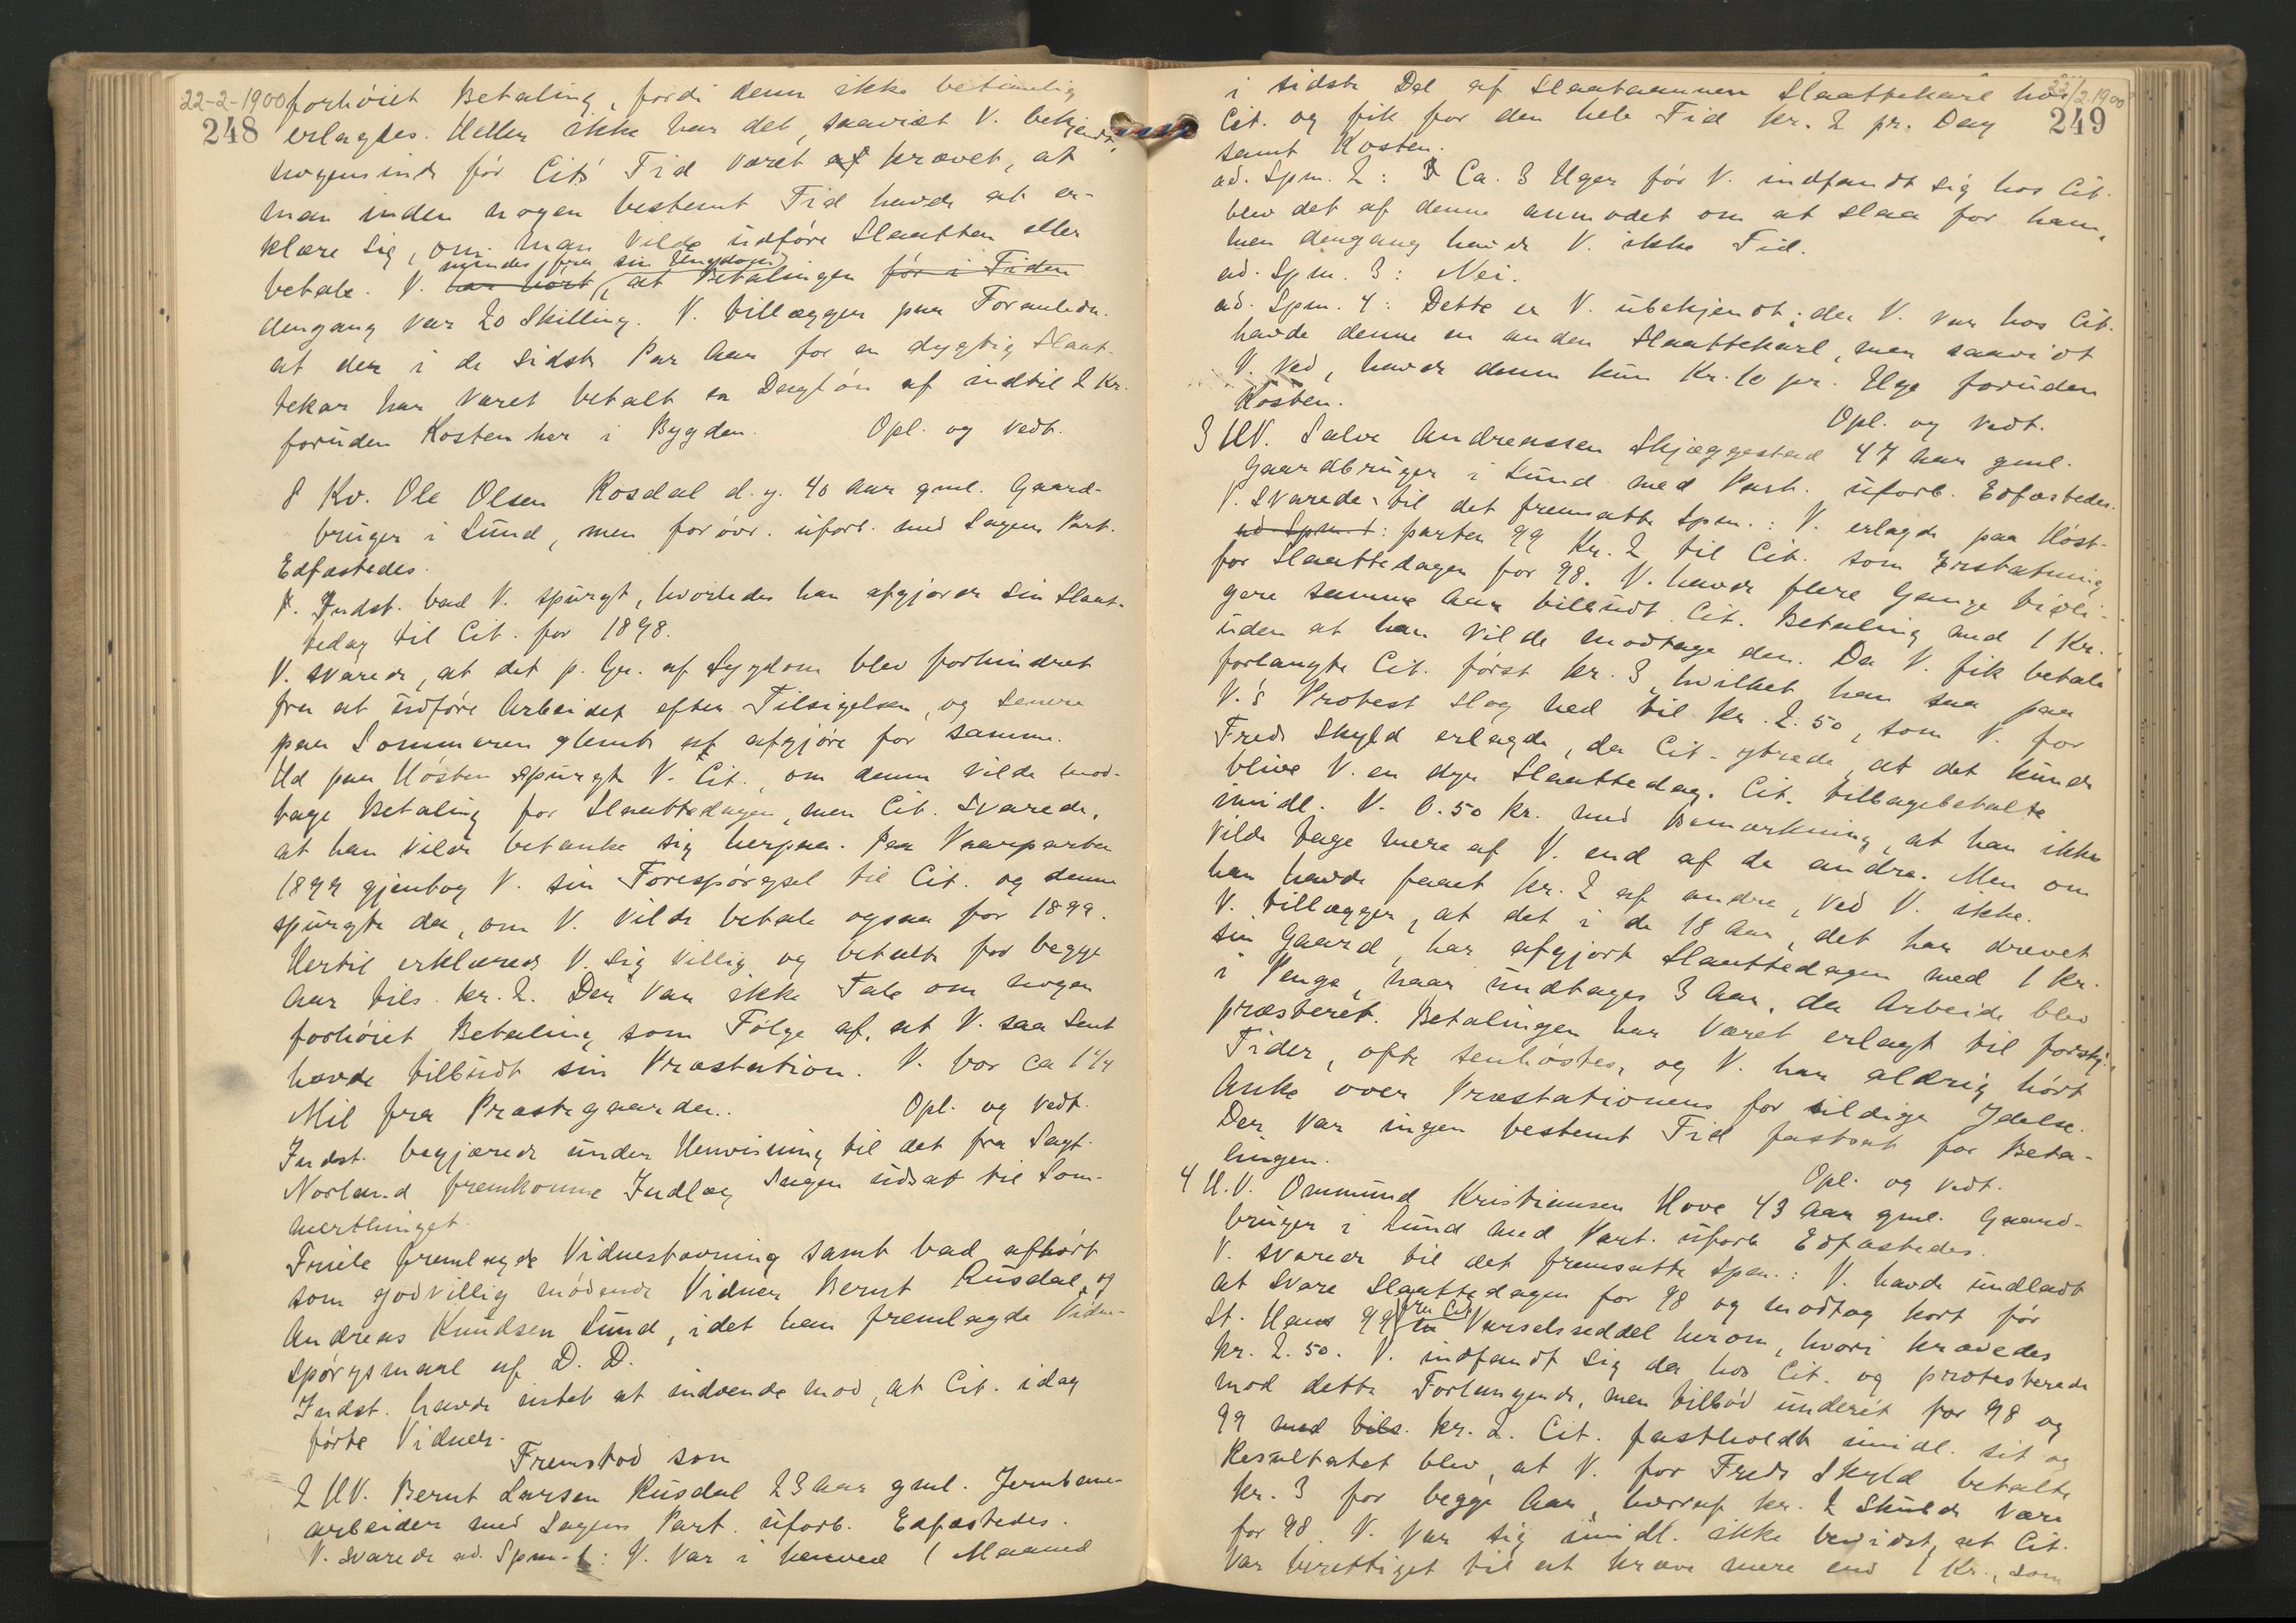 22-2-1900
248
forhöiet Betaling, fordi denne ikke betimelig
erlagdes. Heller ikke har det, saavidt V. bekjendt,
nogensinde för Cit's Tid været af krævet, at
man inden nogen bestemt Tid havde at er-
klære sig, om man vilde udföre Slaatten eller
mindes, fra sin Ungdom
betale. V. har hört, at Betalingen för i Tiden
dengang var 20 Skilling. V. tillægger paa Foranledn.
at der i de sidste Par Aar for en dygtig Slaat-
tekar har været betalt en Daglön af indtil 2 Kr.
foruden Kosten her i Bygden. Opl. og vedt.
8 Kv. Ole Olsen Rosdal d.y. 40 Aar gml. Gaard-
bruger i Lund, men for övr. uforb. med Sagens Part.
Edfæstedes.
Indst. bad V. spurgt, hvorledes han afgjorde sin Slaat-
tedag til Cit. for 1898.
V. svarede, at det p. Gr. af Sygdom blev forhindret
fra at udföre Arbeidet efter Tilsigelsen, og senere
paa Sommeren glemte at afgjöre for samme.
Ud paa Hösten spurgte V. Cit., om denne vilde mod-
tage Betaling for Slaattedagen, men Cit. svarede,
at han vilde betænke sig herpaa. Paa Vaarparten
1899 gjentog V. sin Forespörgsel til Cit. og denne
spurgte da, om V. vilde betale ogsaa for 1899.
Hertil erklærede V. sig villig og betalte for begge
Aar tils. kr. 2. Der var ikke Tale om nogen
forhöiet Betaling som Fölge af, at V. saa sent
havde tilbudt sin Præstation. V. bor ca 1 1/4
Mil fra Præstegaarden. Opl. og vedt.
Indst. begjærede under Henvisning til det fra Sagf.
Norland fremkomne Indlæg Sagen udsat til Som-
merthinget.
Friele fremlagde Vidnestævning samt bad afhört
som godvillig mödende Vidner Bernt Rusdal og
Andreas Knudsen Lund, idet han fremlagde Vidne-
spörgsmaal af D. D.
Indst. havde intet at indvende mod, at Cit. idag
förte Vidner.
Fremstod som
2 HV. Bernt Larsen Rusdal 23 Aar gml. Jernbane-
arbeider med Sagens Part. uforb. Edfæstedes.
V. svarede ad. Spm. 1: V. var i henved 1 Maaned
22/2.1900
249
i sidste Del af Slaataannen Slaattekarl hos
Cit. og fik for den hele Tid kr. 2 pr. Dag
samt Kosten.
ad. Spm. 2: Ca. 3 Uger för V. indfandt sig hos Cit.
blev det af denne anmodet om at slaa for ham,
men dengang havde V. ikke Tid.
ad. Spm. 3: Nei.
ad. Spm. 4: Dette er V. ubekjendt; da V. var hos Cit.
havde denne en anden Slaattekarl, men saavidt
V. ved, havde denne kun Kr. 10 pr. Uge foruden
Kosten. Opl. og vedt.
3 HV. Salve Andreassen Skjæggestad 47 Aar gml.
Gaardbruger i Lund med Part. uforb. Edfæstedes.
V. svarede til det fremsatte Spm.: V. erlagde paa Höst-
ad Spm. 1: parten 99 Kr. 2 til Cit. som Erstatning
for Slaattedagen for 98. V. havde flere Gange tidli-
gere samme Aar tilbudt Cit. Betaling med 1 Kr.
uden at han vilde modtage den. Da V. fik betale
forlangte Cit. först kr. 3, hvilket han saa paa
V.s Protest slog ned til kr. 2.50, som V. for
Freds Skyld erlagde, da Cit. ytrede, at det kunde
blive V. en dyr Slaattedag. Cit. tilbagebetalte
imidl. V. 0.50 kr. med Bemærkning, at han ikke
vilde tage mere af V. end af de andre. Men om
han havde faaet kr. 2 af andre, ved V. ikke.
V. tillægger, at det i de 18 Aar, det har drevet
sin Gaard, har afgjort Slaattedagen med 1 kr.
i Penge, naar undtages 3 Aar, da Arbeide blev
præsteret. Betalingen har været erlagt til forskj.
Tider, ofte senhöstes, og V. har aldrig hört
Anke over Præstationens for sildige Ydelse.
Der var ingen bestemt Tid fastsat for Beta-
lingen. Opl. og vedt.
4 H.V. Ommund Kristiansen Hove 43 Aar gml. Gaard-
bruger i Lund med Part. uforb. Edfæstedes.
V. svarede til det fremsatte Spm.: V. havde undladt
at svare Slaattedagen for 98 og modtog kort för
fra Cit.
St. Hans 99 en Varselsseddel herom, hvori krævedes
kr. 2.50. V. indfandt sig da hos Cit. og protesterede
mod dette Forlangende, men tilböd underet for 98 og
99 med tils. kr. 2. Cit. fastholdt imidl. sit og
Resultatet blev, at V. for Freds Skyld betalte
kr. 3 for begge Aar, hvoraf kr. 2 skulde være
for 98. V. var sig imidl. ikke bevidst, at Cit.
var berettiget til at kræve mere end 1 Kr., som